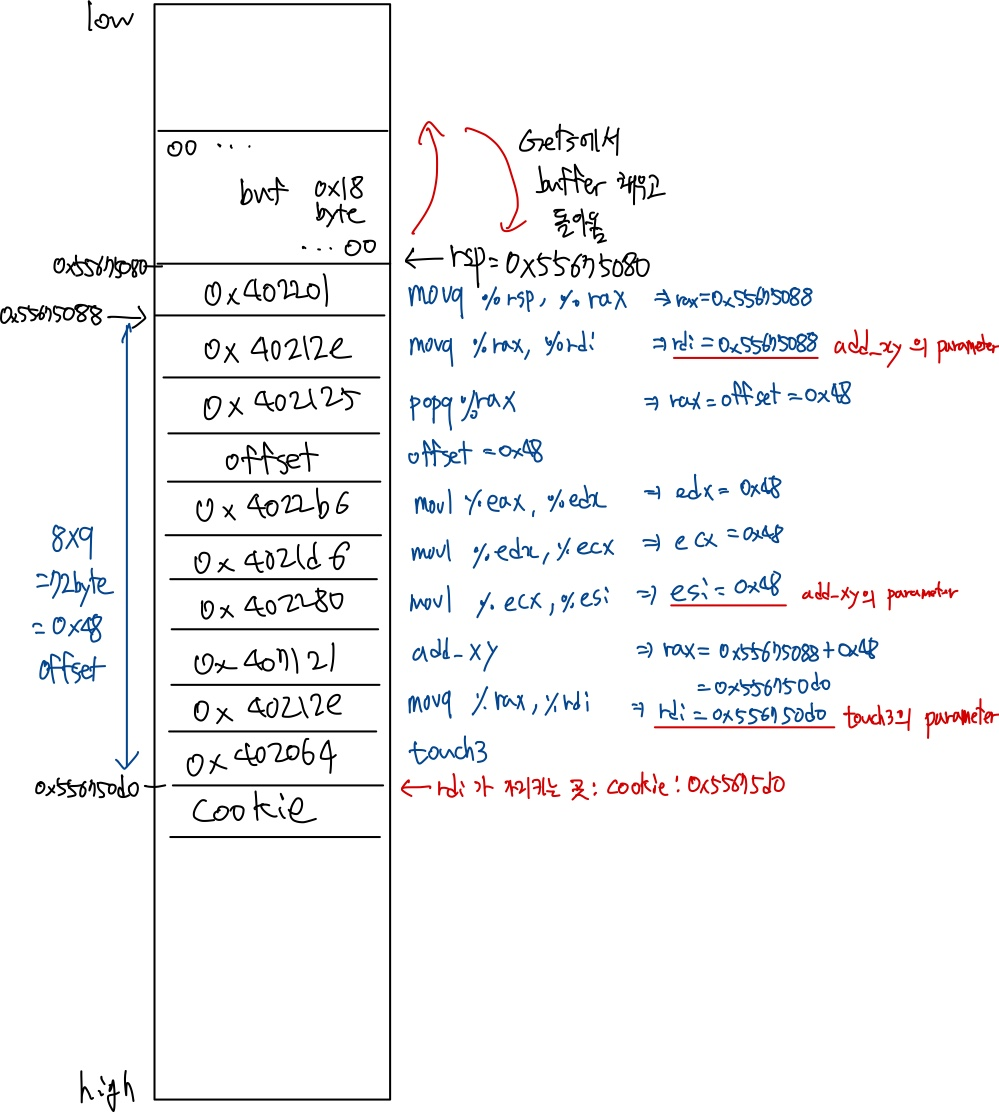 low
00 ...
buf 0x18
byte
... 00
Gets에서
buffer 채우고
돌아옴
0x55675080
← rsp = 0x55675080
0x402201
movq %rsp, %rax ⇒ rax=0x55675088
0x55675088 →
0x40212e
movq %rax, %rdi ⇒ rdi = 0x55675088 add_xy의 parameter
0x402125
popq %rax ⇒ rax = offset = 0x48
offset
offset = 0x48
0x4022b6
movl %eax, %edx ⇒ edx = 0x48
0x4021d6
movl %edx, %ecx ⇒ ecx = 0x48
0x402280
movl %ecx, %esi ⇒ esi = 0x48 add_xy의 parameter
8x9
=72byte
= 0x48
offset
0x407121
add_xy ⇒ rax = 0x55675088+0x48
= 0x556750d0
0x40212e
movq %rax, %rdi ⇒ rdi = 0x556750d0 touch3의 parameter
0x402064
touch3
0x556750d0
← rdi가 가리키는 곳: cookie: 0x55675d0
cookie
high